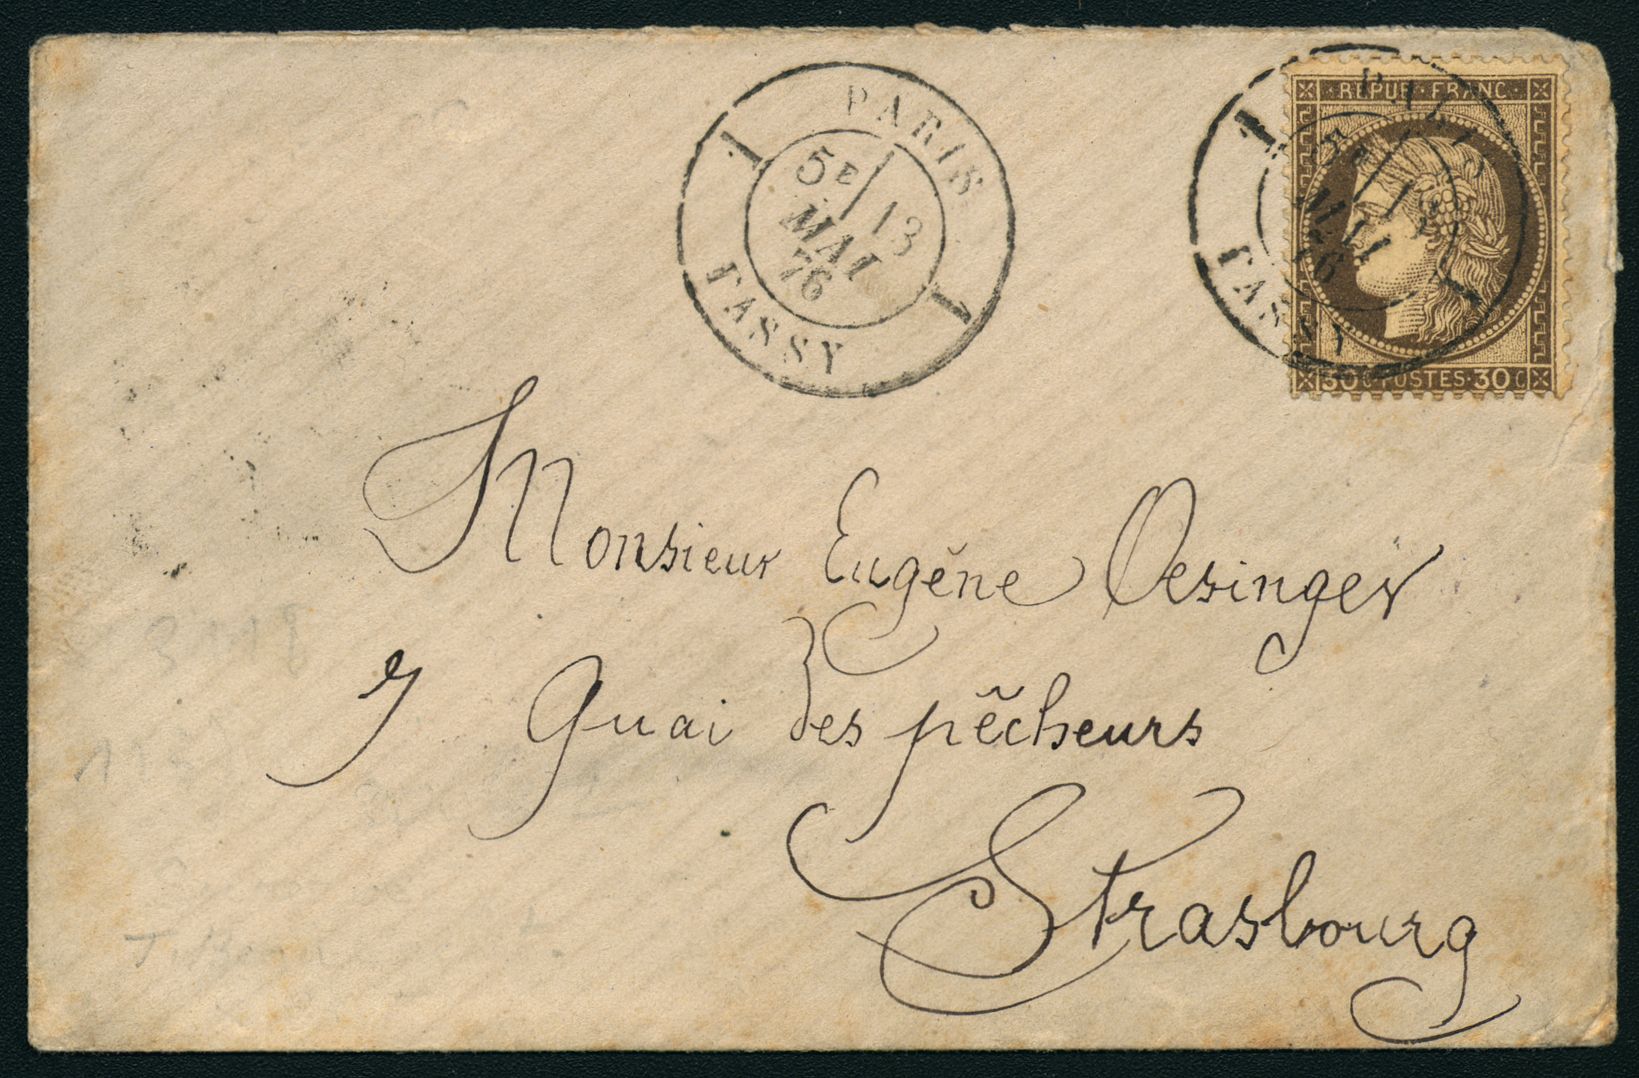 PARIS
5E 13
MAI
76
PASSY
REPUB·FRANC
PARIS
5E 13
MAI
76
PASSY
30 C·POSTES·30 C
Monsieur Eugène Oesinger
7 Quai des pêcheurs
Strasbourg